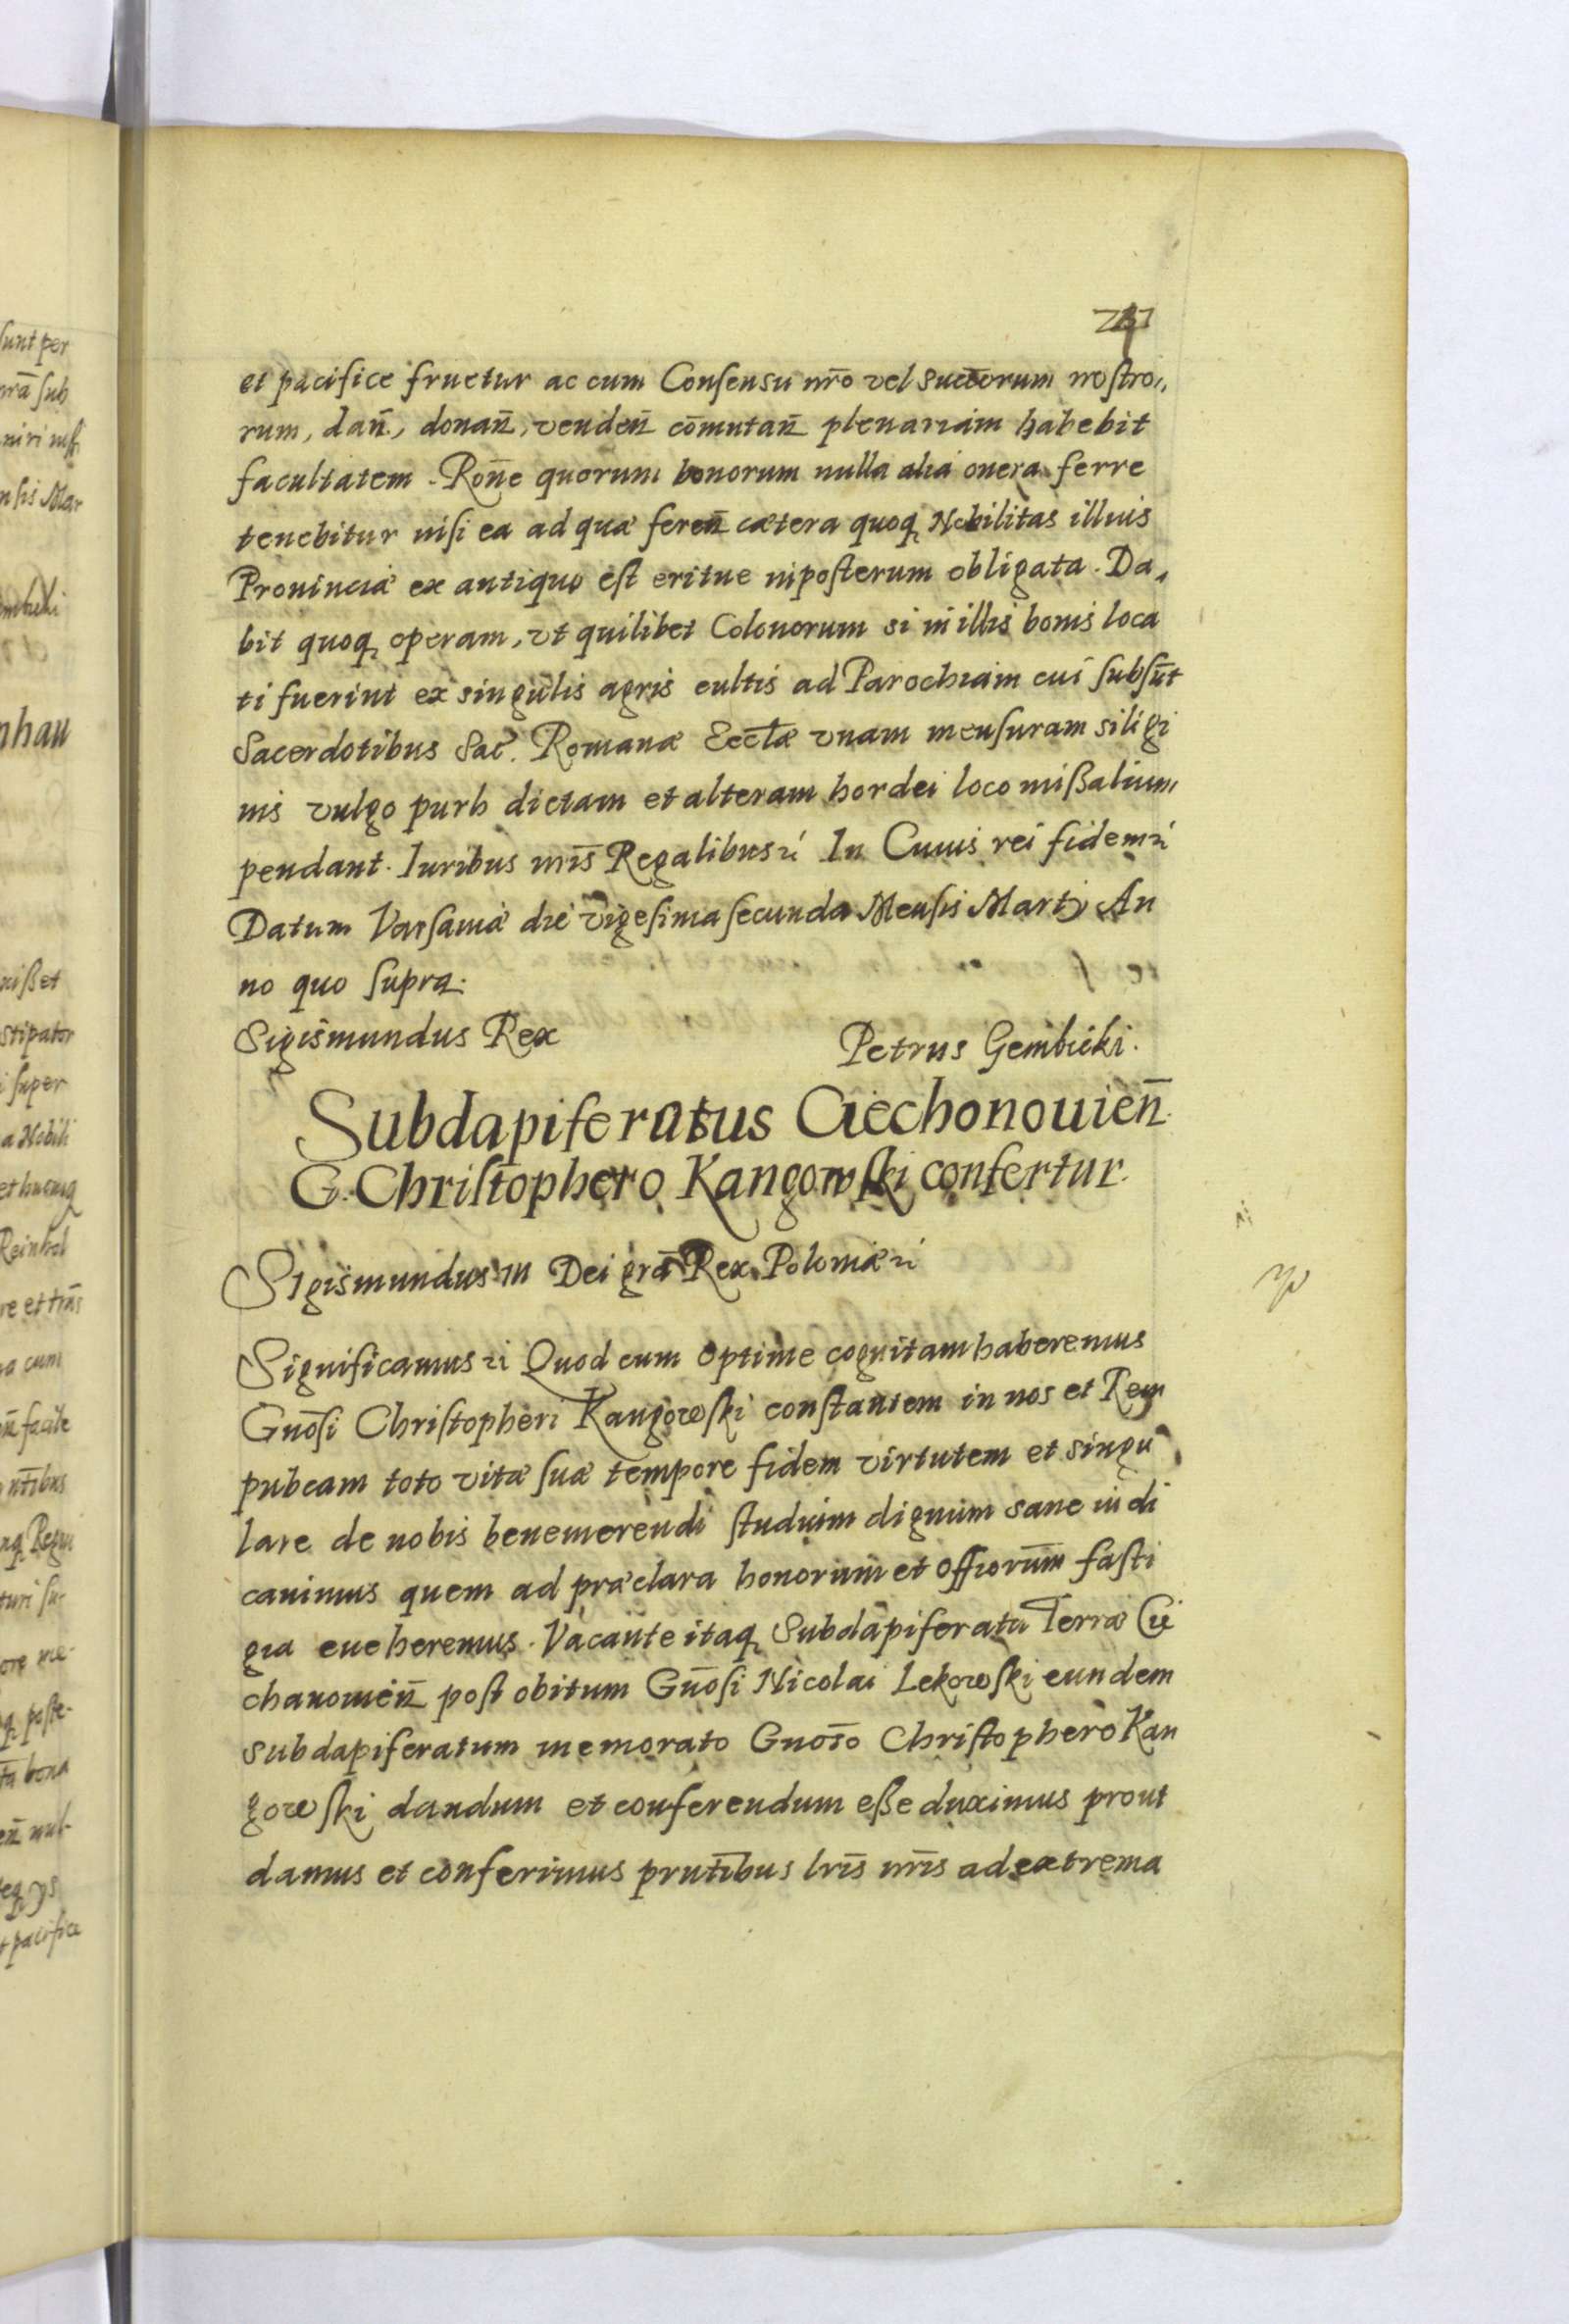 et pacifice fruetur ac cum Consensu nr̄o vel succ̄orum nostro„
rum, dan̄, donan̄, venden̄ com̄utan̄ plenariam habebit
facultatem. Ron̄e quorum bonorum nulla alia onera ferre
tenebitur nisi ea ad quæ feren̄ cætera quoq₃ Nobilitas illius
Prouinciæ ex antiquo est eritue inposterum obligata. Da„
bit quoq₃ operam, vt quilibet Colonorum si in illis bonis loca
ti fuerint ex singulis agris cultis ad Parochiam cui subsūt
Sacerdotibus Sac. Romanæ Eccl̄æ vnam mensuram siligi
nis vulgo purh dictam et alteram hordei loco missalium,
pendant. Iuribus nr̄is Regalibus &c In Cuius rei fidem &c
Datum Varsauiæ die vigesima secunda Mensis Martij An
no quo supra.
Sigismundus Rex Petrus Gembicki.
Subdapiferatus Ciechonouien̄
G. Christophero Kangowski confertur.
Sigismundus III Dei grā Rex Poloniæ &c
Significamus &c Quod cum optime cognitam haberemus
Gnōsi Christopheri Kangowski constantem in nos et Rem
pubcam toto vitæ suæ tempore fidem virtutem et singu
lare de nobis benemerendi studium dignum sane iudi
cauimus quem ad præclara honorum et offiorum̄ fasti
gia eueheremus. Vacante itaq₃ Subdapiferatu Terræ Cie
chanouien̄ post obitum Gnōsi Nicolai Lekowski eundem
subdapiferatum memorato Gnoso Christophero Kan
gowski dandum et conferendum esse duximus prout
damus et conferimus prntībus lrīs nrīs ad extrema